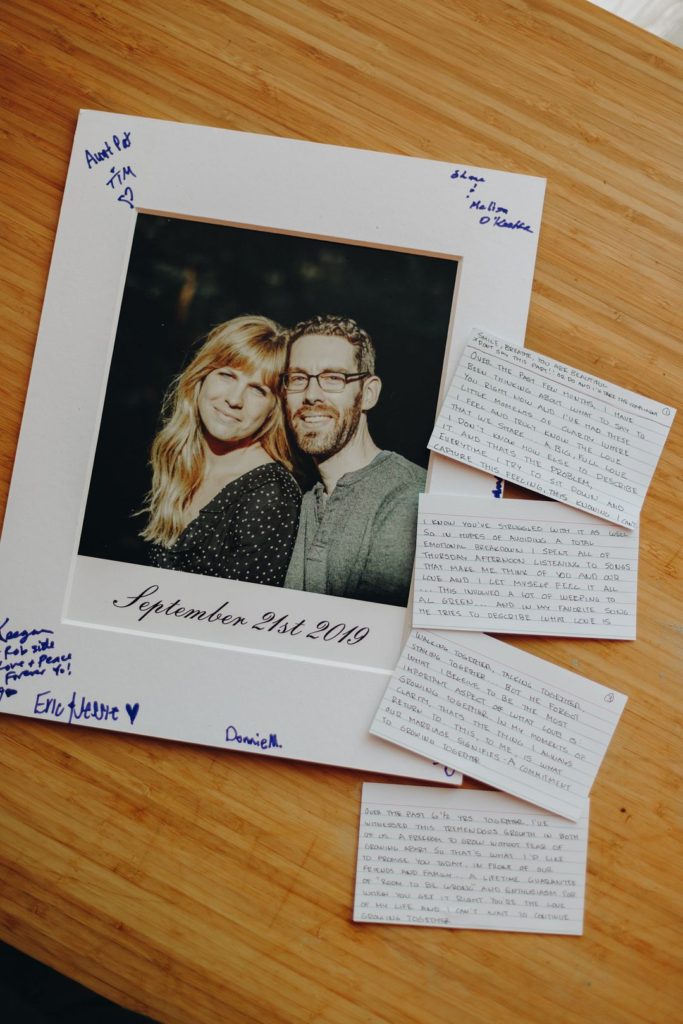 Aunt Pat
TTM
Melissa
O'Keeffe
September 21st 2019
Keegan
Rob side
Love + Peace
Forever Yo!
Eric
Donnie M.
SMILE, BREATHE, YOU ARE BEAUTIFUL
OVER THE PAST FEW MONTHS, I HAVE
BEEN THINKING ABOUT WHAT TO SAY TO
YOU RIGHT NOW AND I'VE HAD THESE
LITTLE MOMENTS OF CLARITY WHERE
I FEEL AND TRULY KNOW THE LOVE
THAT WE SHARE. A BIG, FULL LOVE
I DON'T KNOW HOW ELSE TO DESCRIBE
IT AND THATS THE PROBLEM,
EVERYTIME I TRY TO SIT DOWN AND
CAPTURE THIS FEELING, THIS KNOWING I CAN'T
I KNOW YOU'VE STRUGGLED WITH IT AS WELL
SO IN HOPES OF AVOIDING A TOTAL
EMOTIONAL BREAKDOWN I SPENT ALL OF
THURSDAY AFTERNOON LISTENING TO SONGS
THAT MAKE ME THINK OF YOU AND OUR
LOVE AND I LET MYSELF FEEL IT ALL
... THIS INVOLVED A LOT OF WEEPING TO
AL GREEN... AND IN MY FAVORITE SONG
HE TRIES TO DESCRIBE WHAT LOVE IS
3
WALKING TOGETHER, TALKING TOGETHER,
STAYING TOGETHER... BUT HE FORGOT
WHAT I BELIEVE TO BE THE MOST
IMPORTANT ASPECT OF WHAT LOVE IS:
GROWING TOGETHER. IN MY MOMENTS OF
CLARITY, THATS THE THING I ALWAYS
RETURN TO. THIS, TO ME IS WHAT
OUR MARRIAGE SIGNIFIES - A COMMITMENT
TO GROWING TOGETHER
OVER THE PAST 6 1/2 YRS TOGETHER, I'VE
WITNESSED THIS TREMENDOUS GROWTH IN BOTH
OF US. A FREEDOM TO GROW WITHOUT FEAR OF
GROWING APART. SO THAT'S WHAT I'D LIKE
TO PROMISE YOU TODAY, IN FRONT OF OUR
FRIENDS AND FAMILY... A LIFETIME GUARANTEE
OF "ROOM TO BE WRONG" AND ENTHUSIASM FOR
WHEN YOU GET IT RIGHT. YOU'RE THE LOVE
OF MY LIFE AND I CAN'T WAIT TO CONTINUE
GROWING TOGETHER